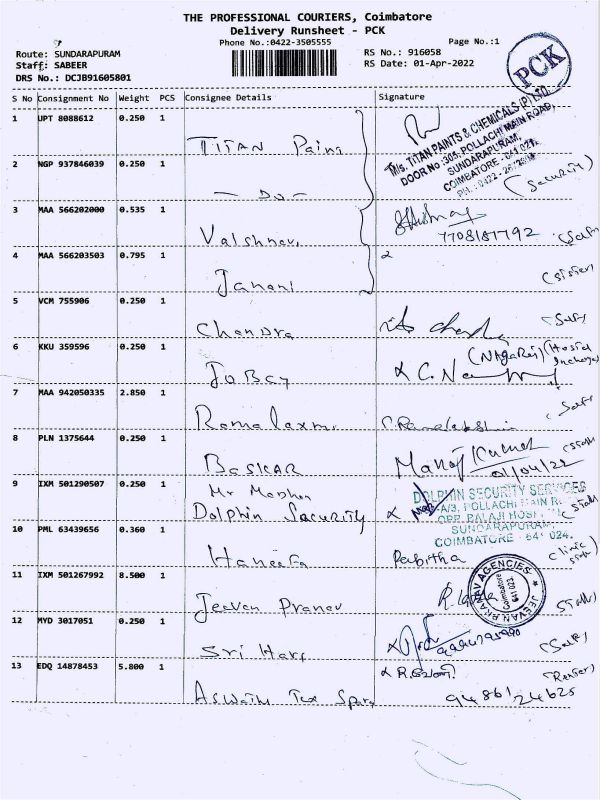 THE PROFESSIONAL COURIERS, Coimbatore
Delivery Runsheet - PCK
Phone No.:0422-3505555
Page No.:1
Route: SUNDARAPURAM
Staff: SABEER
DRS No.: DCJB91605801
RS No.: 916058
RS Date: 01-Apr-2022
PCK
S No Consignment No Weight PCS Consignee Details Signature
1 UPT 8088612 0.250 1 TITAN Pains
M/s. TITAN PAINTS & CHEMICALS (P) LTD
DOOR No :305, POLLACHI MAIN ROAD,
SUNDARAPURAM,
COIMBATORE - 641 024.
(Security)
2 NGP 937846039 0.250 1 - Do -
3 MAA 566202000 0.535 1 Vaishnavi
7708187792
4 MAA 566203503 0.795 1 Janani
(sister)
5 VCM 755906 0.250 1 Chandra
(Self)
6 KKU 359596 0.250 1 JoBoy
(Nagaraj) (Hostel Incharge)
7 MAA 942050335 2.850 1 Ramalaxmi
C. Ramalakshmi
8 PLN 1375644 0.250 1 BASKAR
Manoj Kumar
01/04/22
9 IXM 501290507 0.250 1 Mr Mophan
Dolphin Security
DOLPHIN SECURITY SERVICES
A/3, POLLACHI MAIN R
OPP. BALAJI HOSP
SUNDARAPURAM,
COIMBATORE - 641 024.
10 PML 63439656 0.360 1 Haneefa
Pabitha
(Clinic
11 IXM 501267992 8.500 1 Jeevan Pranav
JEEVAN PRANAV AGENCIES
Coimbatore
641 023.
12 MYD 3017051 0.250 1 Sri Hari
(Self)
13 EDQ 14878453 5.800 1 Aswath Tex Spare
9486124625